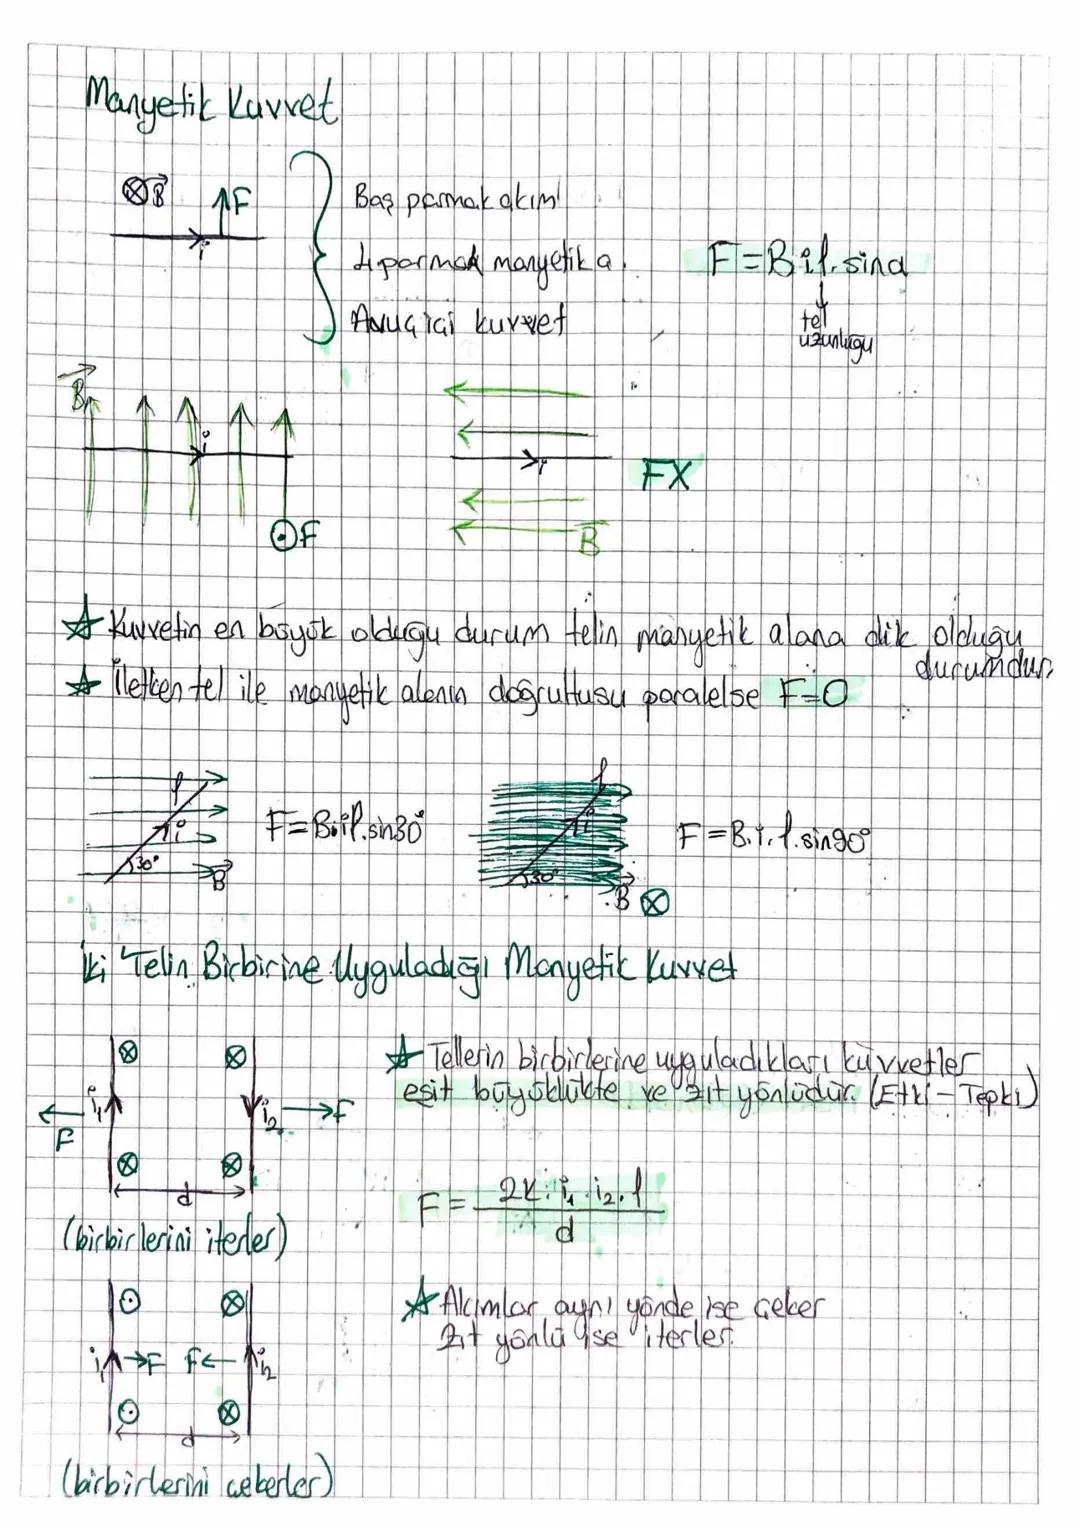 Manyetik Kuvvet
⊗B F
i
Baş parmak akım
4 parmak manyetik a.
Avuç içi kuvvet
F=B.i.l.sinα
tel
uzunluğu
B
i
⊙F
i
FX
B
☆ Kuvvetin en büyük olduğu durum telin manyetik alana dik olduğu
durumdur.
☆ İletken tel ile manyetik alanın doğrultusu paralelse F=0
l
i
30°
B
F=B.i.l.sin30°
l
i
30°
B ⊗
F=B.i.l.sin90°
İki Telin Birbirine Uyguladığı Manyetik Kuvvet
⊗ ⊗
F i₁ i₂ F
⊗ ⊗
d
(birbirlerini iterler)
☆ Tellerin birbirlerine uyguladıkları kuvvetler
eşit büyüklükte ve zıt yönlüdür. (Etki - Tepki)
F = 2K.i₁.i₂.l
d
⊙ ⊗
i₁ F F i₂
⊙ ⊗
d
(birbirlerini çekerler)
☆ Akımlar aynı yönde ise çeker
Zıt yönlü ise iterler.